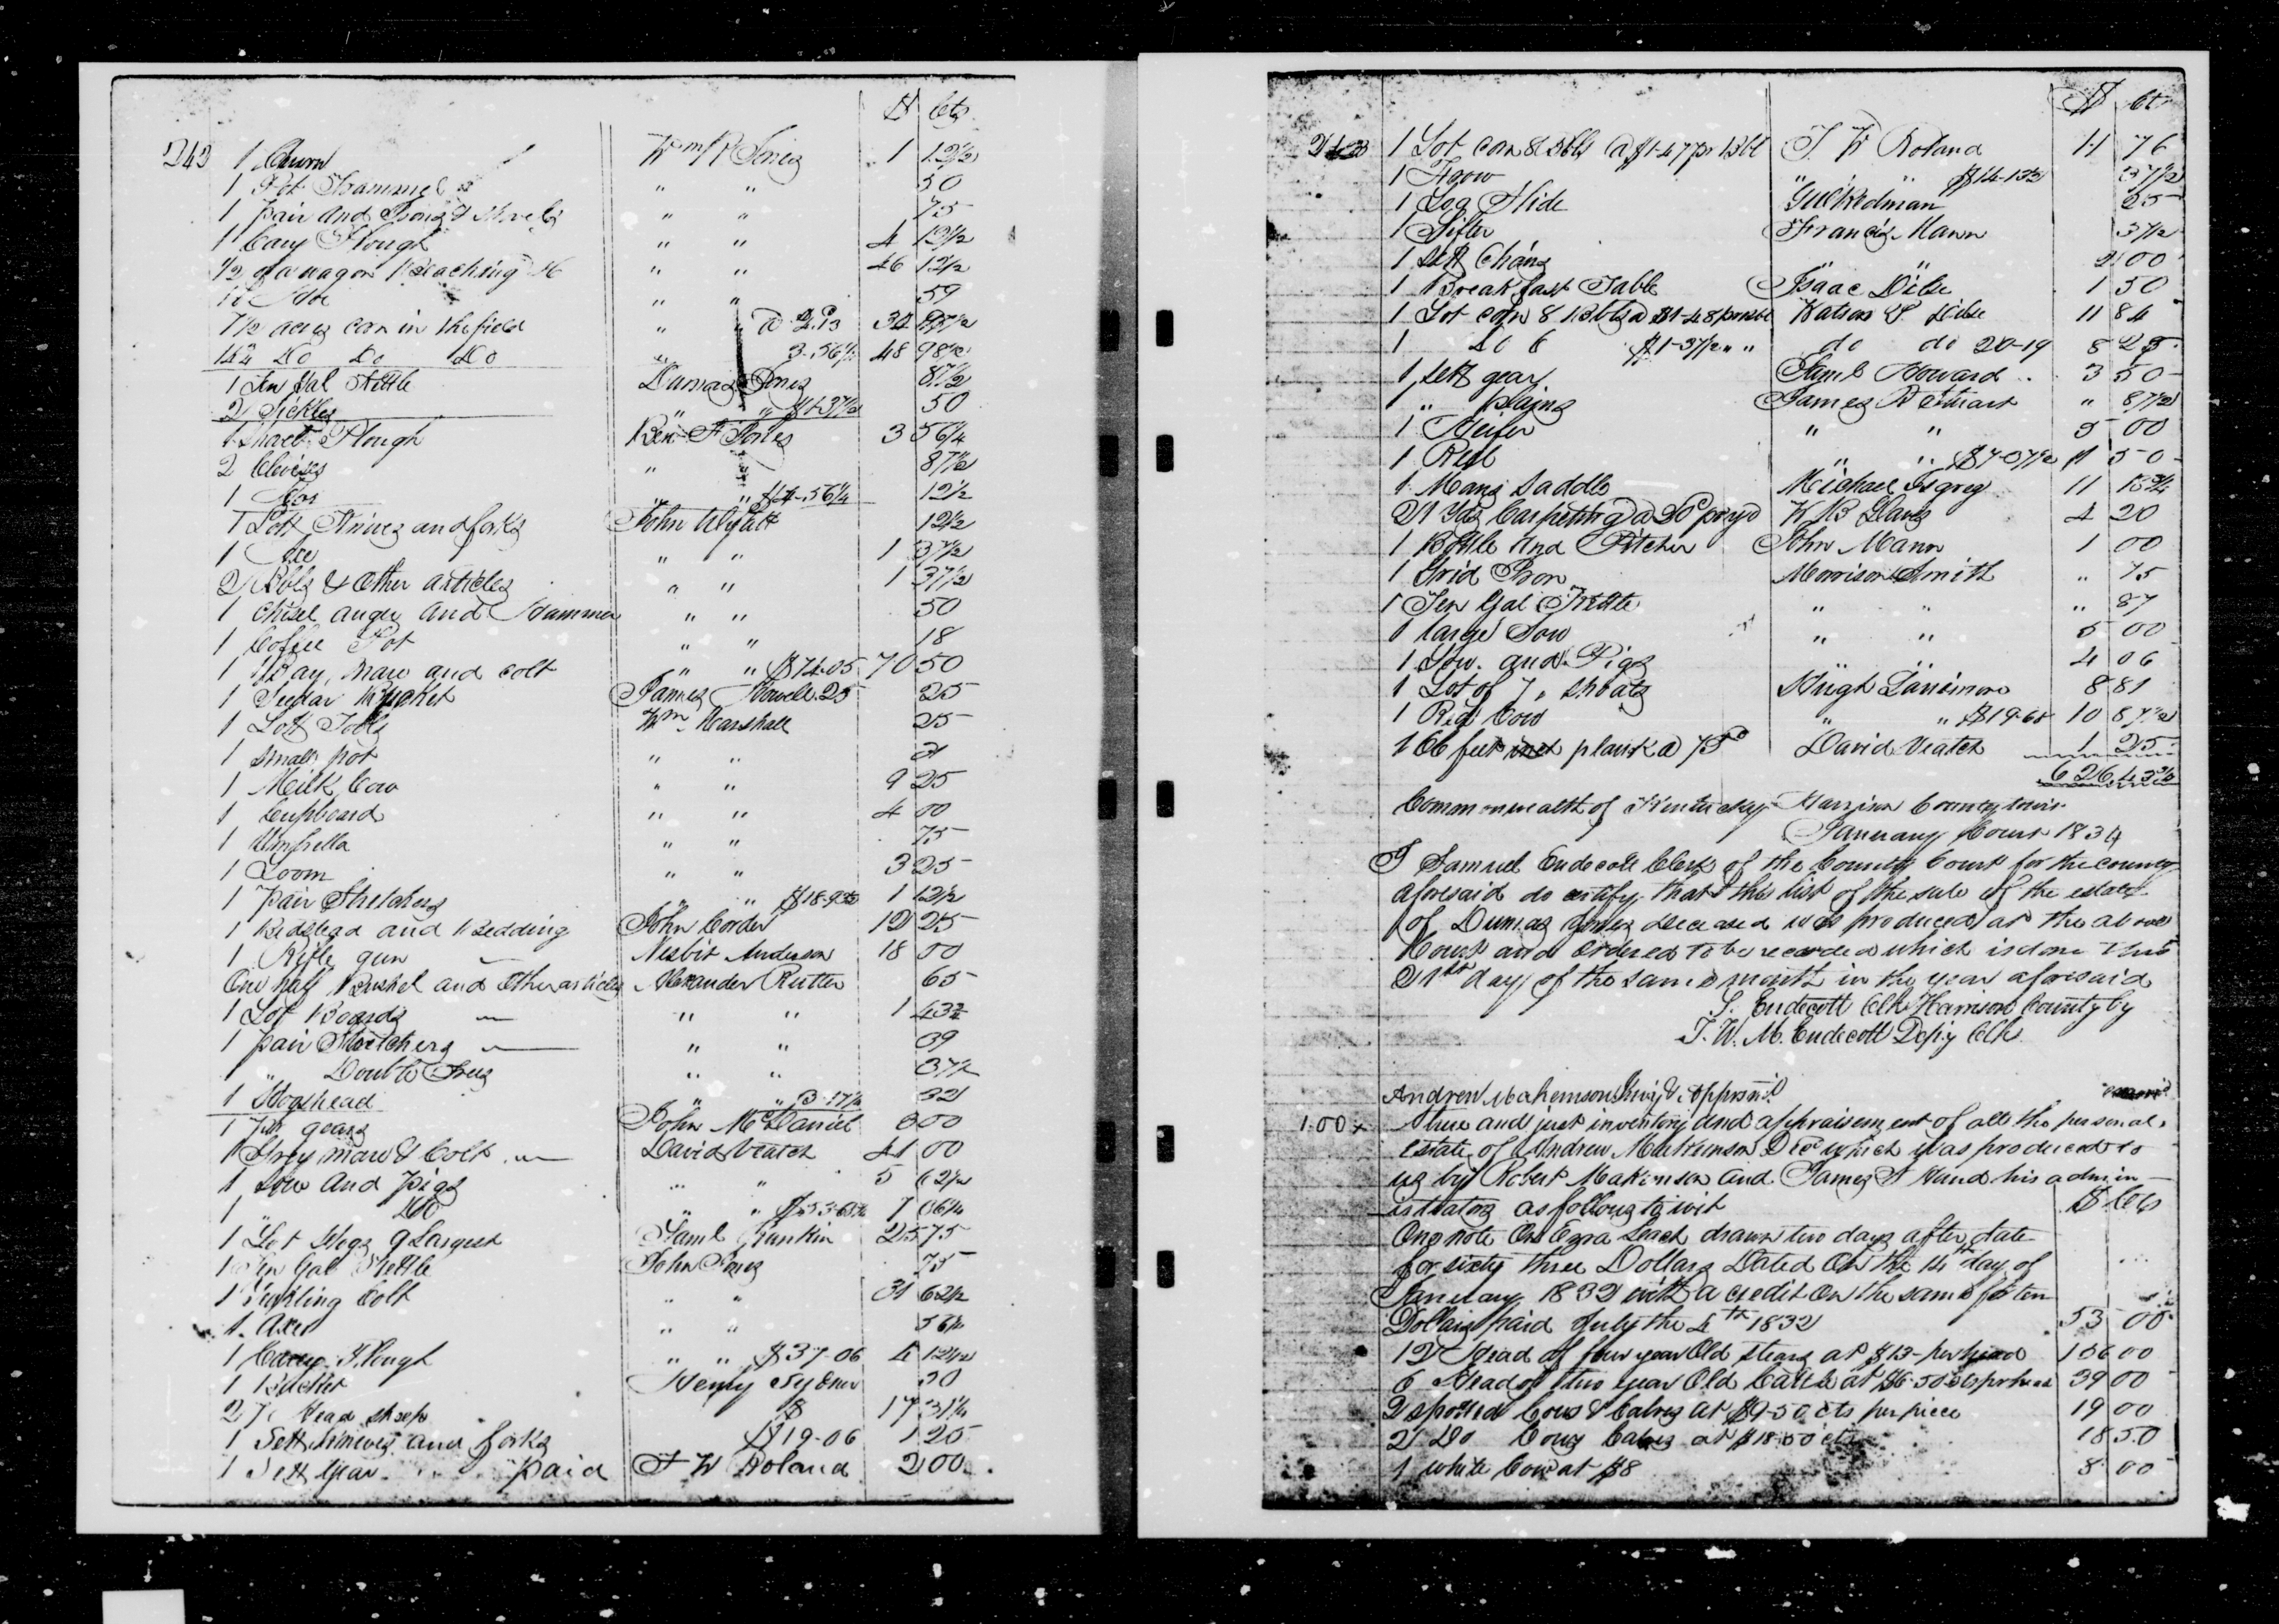 $ Cts
242 1 Churn Wm P Jones 1 12½
1 Pot Trammel " " 50
1 pair and Irons & Shovels " " 75
1 Cary Plough " " 4 13½
½ of a wagon " " 46 12½
" " 59
7½ acres corn in the field " " a 4.13 97½
Do Do Do 3.56¼ 48 98½
1 Ten Gal Kettle Dumas Jones 87½
2 Sickles " " $1-37½ 50
1 Plough Ben F Jones 3 56¼
2 Clevises " 87½
1 " " $4-56¼ 12½
1 Lott Knives and forks John Wyatt 12½
1 Axe " " 1 37½
2 Bbls & Other articles " " 1 37½
1 Chisel auger and Hammer " " 50
1 Coffee Pot " " 18
1 Bay mare and colt " " $74-05 70 50
1 Bucket James Howell 25 25
1 Lott Tools Wm Marshall 25
1 small pot " "
1 Milk Cow " " 9 25
1 Cupboard " " 4 00
1 Umbrella " " 75
1 Loom " " 3 25
1 pair Stretchers " " 1 12½
1 Bedstead and Bedding John Corder 12 25
1 Rifle gun Nesbit Anderson 18 00
One half Bushel and Other articles Alexander Rutter 65
1 Lot Boards " " 1 43¾
1 pair Stretchers " " 39
1 " Double Trees " " 37½
1 Hogshead " " 3.17½ 32
1 pr gears John McDaniel 3 00
1 Grey mare & Colt David Veatch 41 00
1 Sow and Pigs " " 5 62½
1 " Do " " 7 06¼
1 Lot Hogs 9 Largest Saml Rankin 25 75
1 Ten Gal Kettle John Jones 75
1 Colt " " 31 62½
1 Axe " " 56¼
1 Cary Plough " " $37-06 4 12½
1 Henry 50
27 Head sheep 17 31¼
1 Sett Knives and forks $19-06 1 25
1 Sett Gear paid T W Roland 2 00
$ Ct
243 1 Lot corn 8 Bbls @ $1-47 pr Bbl T. W Roland 11 76
1 Frow " " 37½
1 Log Slide 25
1 Sifter Francis Mann 37½
1 sett Chairs " " 2 00
1 Breakfast Table Isaac Dile 1 50
1 Lot corn 8 Bbls @ $1-48 pr Bbl Watson Dile 11 84
1 Do 6 $1-37½ " " do do 20-19 8 25
1 sett gear Saml Howard 3 50
1 " James R Stuart " 87½
1 Heifer " " 5 00
1 Reel " " $7-37½ 1 50
1 Mans Saddle Michael 11 18¾
21 Yds Carpeting @ 20c pr yd W B 4 20
1 Bottle and Pitcher John Mann 1 00
1 Grid Iron Morrison Smith " 75
1 Ten Gal Kettle " " " 87
1 large Sow " " 5 00
1 Sow and Pigs " " 4 06
1 Lot of 7 Shoats Hugh 8 81
1 Red Cow " " $19-68 10 87½
166 feet plank @ 75c David Veatch 1 25
Commonwealth of Kentucky Harrison County towit
January Court 1834
I Samuel Endecott Clerk of the County Court for the county
aforesaid do certify that this list of the sale of the estate
of Dumas Jones deceased was produced at the above
Court and Ordered to be recorded which is done this
21st day of the same month in the year aforesaid
S. Endecott Clk Harrison County by
T. W. M. Endecott Depy Clk
Andrew Makemson
1.00 A true and just inventory and appraisement of all the personal
estate of Andrew Makemson Decd which was produced to
us by Robert Makemson and James Hand his admin
istrators as follows towit $ Cts
One note On Ezra Leach drawn two days after date
for sixty three Dollars Dated On the 14th day of
January 1832 with a credit on the same for ten
Dollars paid July the 4th 1832 53 00
12 Head of four year Old Stears at $13 per head 156 00
6 Head of two year Old Cattle at $6-50 cts per head 39 00
2 spotted Cows & Calves at $9-50 cts per piece 19 00
2 Do Cows Calves at $18-50 cts 18 50
1 white Cow at $8 8 00